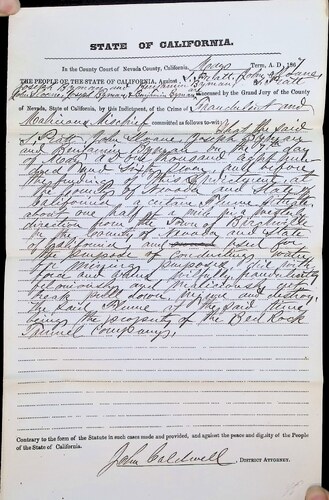 STATE OF CALIFORNIA.
In the County Court of Nevada County, California, May Term, A. D. 1867
THE PEOPLE OF THE STATE OF CALIFORNIA, Against
Joseph Byman and Benjamin Byman
accused by the Grand Jury of the County
of Nevada, State of California, by this Indictment, of the Crime of Fraudulent and
Malicious Mischief committed as follows to-wit: That the said
Pratt John Sloane Joseph Byman
and Benjamin Byman on the day
of May A D one thousand eight hun-
dred and Sixty Seven and before
the finding of this Indictment at
the County of Nevada and State of
California a certain Flume situate
about one half a mile in a westerly
direction from the Town of
in the County of Nevada and State
of California, and used for
the purpose of conducting water
for mining purposes did with
force and arms wilfully fraudulently
feloniously and maliciously cut
break pull down, injure and destroy,
the said Flume
being the property of the Bed Rock
Tunnel Company,
Contrary to the form of the Statute in such cases made and provided, and against the peace and dignity of the People
of the State of California.
John Caldwell, DISTRICT ATTORNEY.